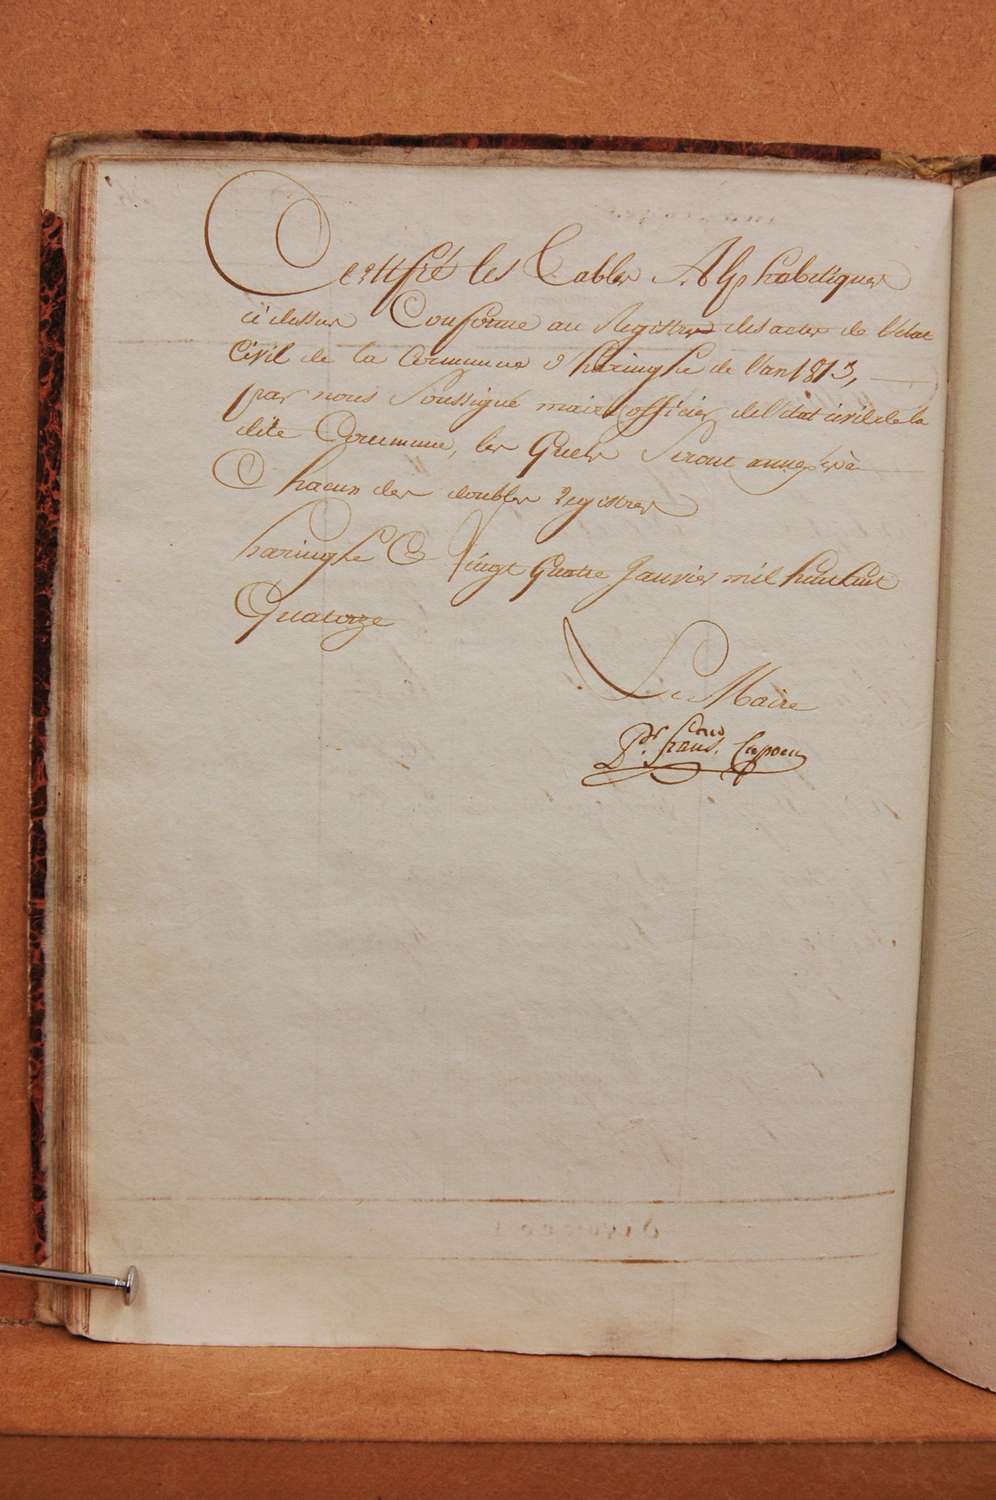 Certifié les Tables Alphabetiques
ci dessus Conforme au Registre des actes de l'état
Civil de la Commune d'haringhe de l'an 1813,
par nous Soussigné maire officier de l'état civil de la
dite Commune, les quels Seront annexés à
Chacun des doubles registres
haringhe Ce Vingt quatre Janvier mil huit Cent
Quatorze
Le Maire